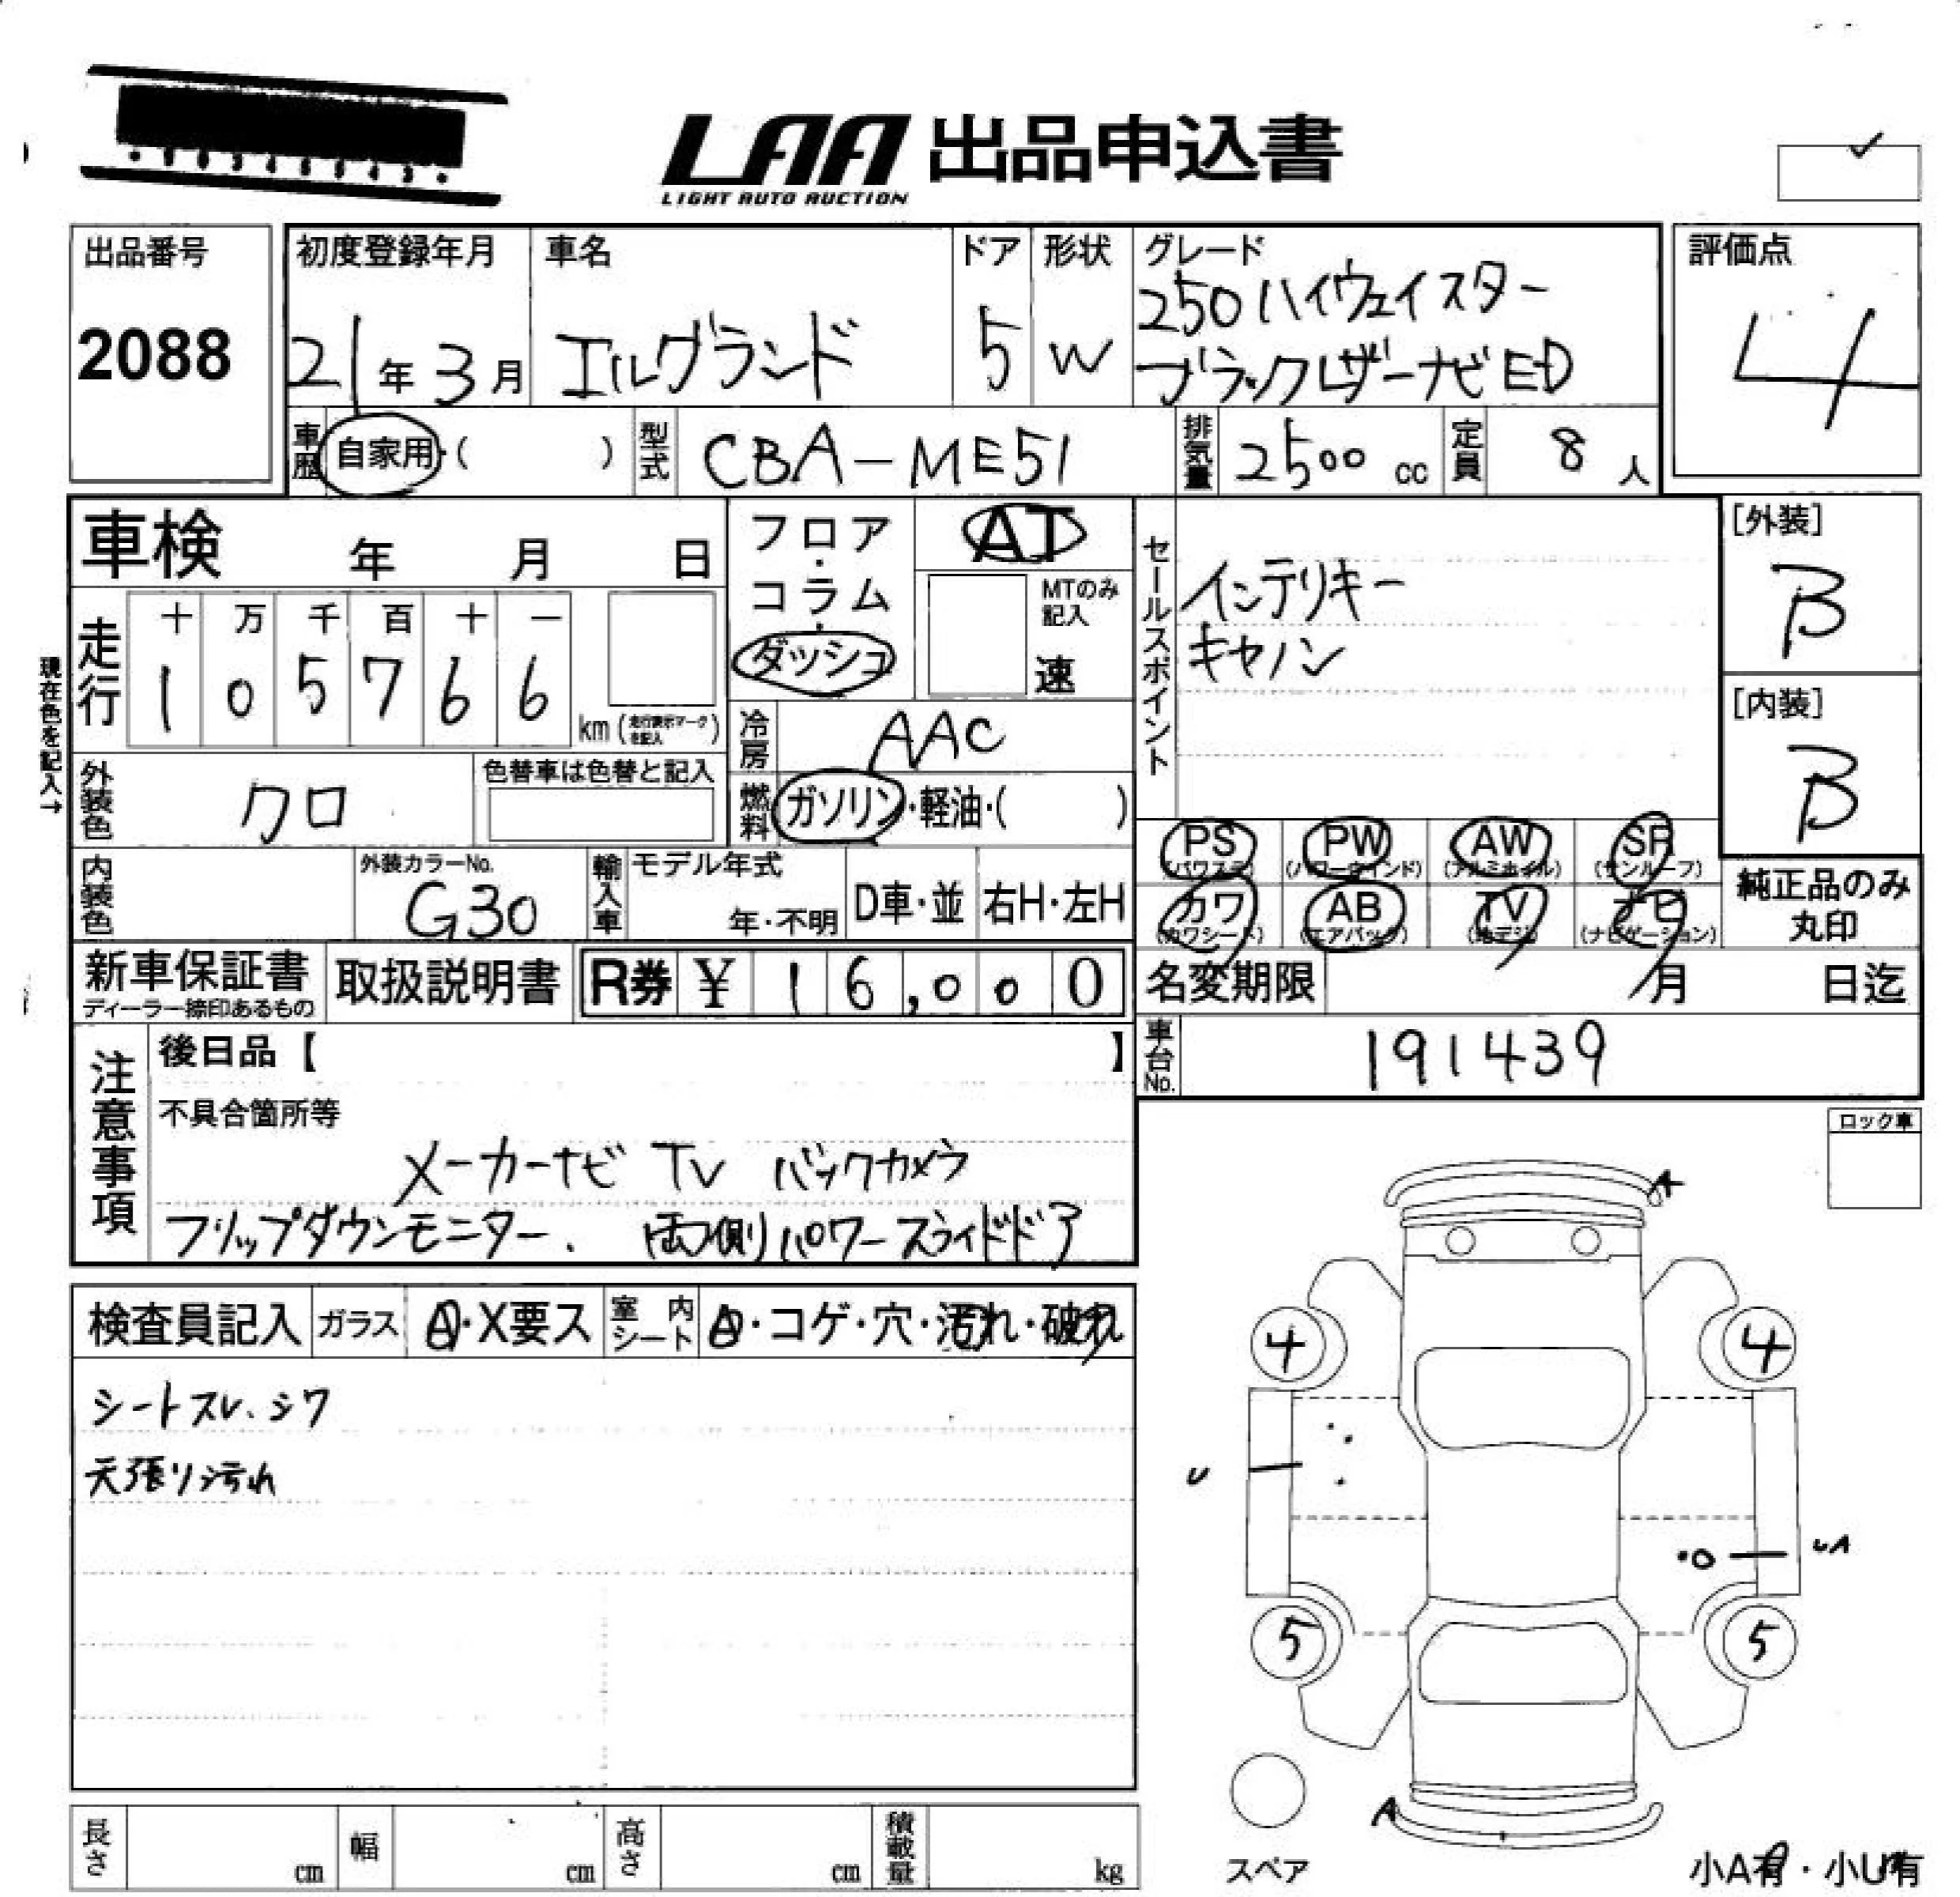 LAA 出品申込書
LIGHT AUTO AUCTION
出品番号
2088
初度登録年月
21年3月
車名
エルグランド
ドア
5
形状
W
グレード
250ハイウェイスター
ブラックレザーナビED
評価点
4
車歴
自家用・( )
型式
CBA-ME51
排気量
2500 cc
定員
8 人
車検 年 月 日
フロア・コラム・ダッシュ
AT
MTのみ記入
速
セールスポイント
インテリキー
キャノン
[外装]
B
[内装]
B
現在色を記入→
走行
十 万 千 百 十 一
1 0 5 7 6 6
km (走行表示マークを記入)
冷房
AAC
外装色
クロ
色替車は色替と記入
燃料
ガソリン・軽油・( )
PS (パワステ)
PW (パワーウインド)
AW (アルミホイル)
SR (サンルーフ)
カワ (カワシート)
AB (エアバック)
TV (地デジ)
ナビ (ナビゲーション)
純正品のみ丸印
内装色
外装カラーNo.
G30
輸入車
モデル年式
年・不明
D車・並
右H・左H
新車保証書
ディーラー捺印あるもの
取扱説明書
R券 ¥ 16,000
名変期限 月 日迄
車台No.
191439
注意事項
後日品【 】
不具合箇所等
メーカーナビ TV バックカメラ
フリップダウンモニター、両側パワースライドドア
ロック車
A
検査員記入
ガラス
A・X要ス
室内シート
A・コゲ・穴・汚れ・破れ
シートスレ、シワ
天張り汚れ
4 4
U
UA
5 5
A
スペア
小A有・小U有
長さ cm
幅 cm
高さ cm
積載量 kg